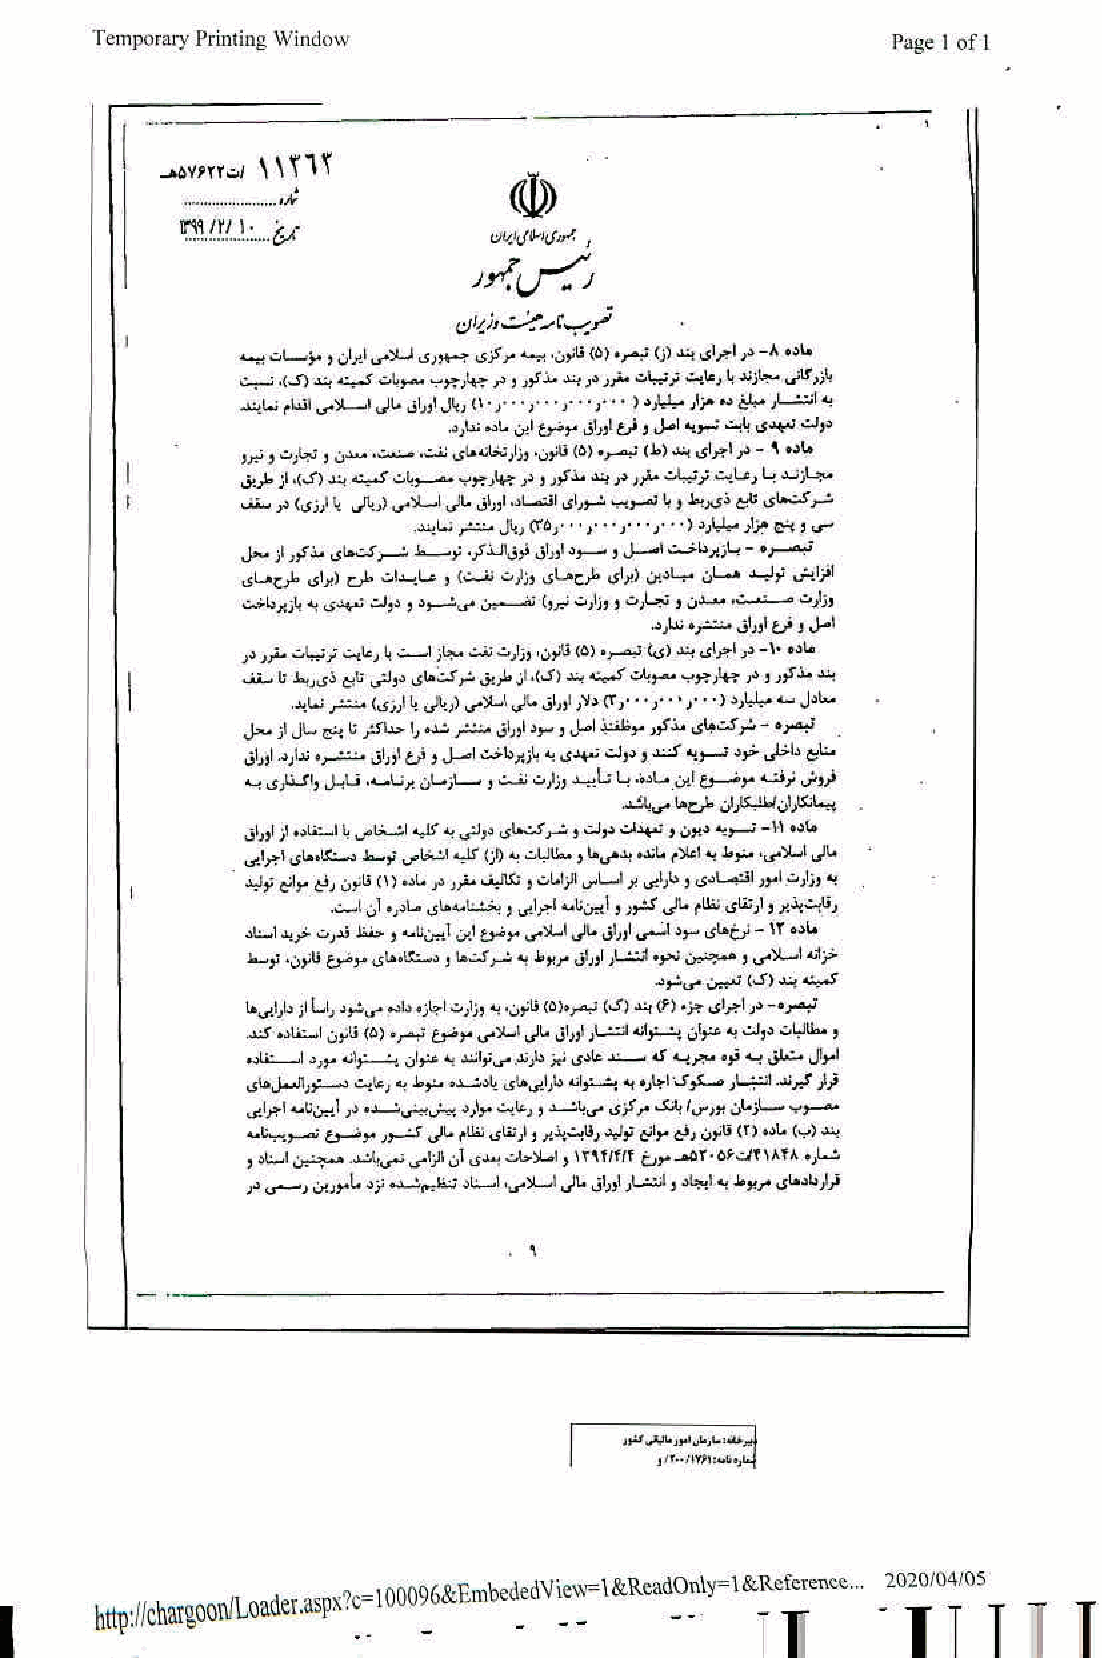 Temporary Printing Window
Page 1 of 1
۱۱۳۶۳/ت۵۷۶۲۲هـ
شماره
تاریخ ۱۳۹۹/۲/۱۰
جمهوری اسلامی ایران
رئیس جمهور
تصویب نامه هیئت وزیران
ماده ۸- در اجرای بند (ز) تبصره (۵) قانون، بیمه مرکزی جمهوری اسلامی ایران و مؤسسات بیمه
بازرگانی مجازند با رعایت ترتیبات مقرر در بند مذکور و در چهارچوب مصوبات کمیته بند (ک)، نسبت
به انتشار مبلغ ده هزار میلیارد (۱۰,۰۰۰,۰۰۰,۰۰۰,۰۰۰) ریال اوراق مالی اسلامی اقدام نمایند.
دولت تعهدی بابت تسویه اصل و فرع اوراق موضوع این ماده ندارد.
ماده ۹ - در اجرای بند (ط) تبصره (۵) قانون، وزارتخانه‌های نفت، صنعت، معدن و تجارت و نیرو
مجازند با رعایت ترتیبات مقرر در بند مذکور و در چهارچوب مصوبات کمیته بند (ک)، از طریق
شرکت‌های تابع ذی‌ربط و با تصویب شورای اقتصاد، اوراق مالی اسلامی (ریالی یا ارزی) در سقف
سی و پنج هزار میلیارد (۳۵,۰۰۰,۰۰۰,۰۰۰,۰۰۰) ریال منتشر نمایند.
تبصره - بازپرداخت اصل و سود اوراق فوق‌الذکر، توسط شرکت‌های مذکور از محل
افزایش تولید همان میادین (برای طرح‌های وزارت نفت) و عایدات طرح (برای طرح‌های
وزارت صنعت، معدن و تجارت و وزارت نیرو) تضمین می‌شود و دولت تعهدی به بازپرداخت
اصل و فرع اوراق منتشره ندارد.
ماده ۱۰- در اجرای بند (ی) تبصره (۵) قانون، وزارت نفت مجاز است با رعایت ترتیبات مقرر در
بند مذکور و در چهارچوب مصوبات کمیته بند (ک)، از طریق شرکت‌های دولتی تابع ذی‌ربط تا سقف
معادل سه میلیارد (۳,۰۰۰,۰۰۰,۰۰۰) دلار اوراق مالی اسلامی (ریالی یا ارزی) منتشر نماید.
تبصره - شرکت‌های مذکور موظفند اصل و سود اوراق منتشر شده را حداکثر تا پنج سال از محل
منابع داخلی خود تسویه کنند و دولت تعهدی به بازپرداخت اصل و فرع اوراق منتشره ندارد. اوراق
فروش نرفته موضوع این ماده، با تأیید وزارت نفت و سازمان برنامه، قابل واگذاری به
پیمانکاران/طلبکاران طرح‌ها می‌باشد.
ماده ۱۱- تسویه دیون و تعهدات دولت و شرکت‌های دولتی به کلیه اشخاص با استفاده از اوراق
مالی اسلامی، منوط به اعلام مانده بدهی‌ها و مطالبات به (از) کلیه اشخاص توسط دستگاه‌های اجرایی
به وزارت امور اقتصادی و دارایی بر اساس الزامات و تکالیف مقرر در ماده (۱) قانون رفع موانع تولید
رقابت‌پذیر و ارتقای نظام مالی کشور و آیین‌نامه اجرایی و بخشنامه‌های صادره آن است.
ماده ۱۲ - نرخ‌های سود اسمی اوراق مالی اسلامی موضوع این آیین‌نامه و حفظ قدرت خرید اسناد
خزانه اسلامی و همچنین نحوه انتشار اوراق مربوط به شرکت‌ها و دستگاه‌های موضوع قانون، توسط
کمیته بند (ک) تعیین می‌شود.
تبصره- در اجرای جزء (۶) بند (ک) تبصره(۵) قانون، به وزارت اجازه داده می‌شود رأساً از دارایی‌ها
و مطالبات دولت به عنوان پشتوانه انتشار اوراق مالی اسلامی موضوع تبصره (۵) قانون استفاده کند.
اموال متعلق به قوه مجریه که سند عادی نیز دارند می‌توانند به عنوان پشتوانه مورد استفاده
قرار گیرند. انتشار صکوک اجاره به پشتوانه دارایی‌های یادشده منوط به رعایت دستورالعمل‌های
مصوب سازمان بورس/ بانک مرکزی می‌باشد و رعایت موارد پیش‌بینی‌شده در آیین‌نامه اجرایی
بند (ب) ماده (۲) قانون رفع موانع تولید رقابت‌پذیر و ارتقای نظام مالی کشور موضوع تصویب‌نامه
شماره ۴۱۸۴۸/ت۵۲۰۵۶هـ مورخ ۱۳۹۴/۴/۴ و اصلاحات بعدی آن الزامی نمی‌باشد. همچنین اسناد و
قراردادهای مربوط به ایجاد و انتشار اوراق مالی اسلامی، اسناد تنظیم‌شده نزد مأمورین رسمی در
۹
دبیرخانه: سازمان امور مالیاتی کشور
شماره نامه: ۲۰۰/۱۷۶۱/ و
http://chargoon/Loader.aspx?c=100096&EmbededView=1&ReadOnly=1&Reference...
2020/04/05